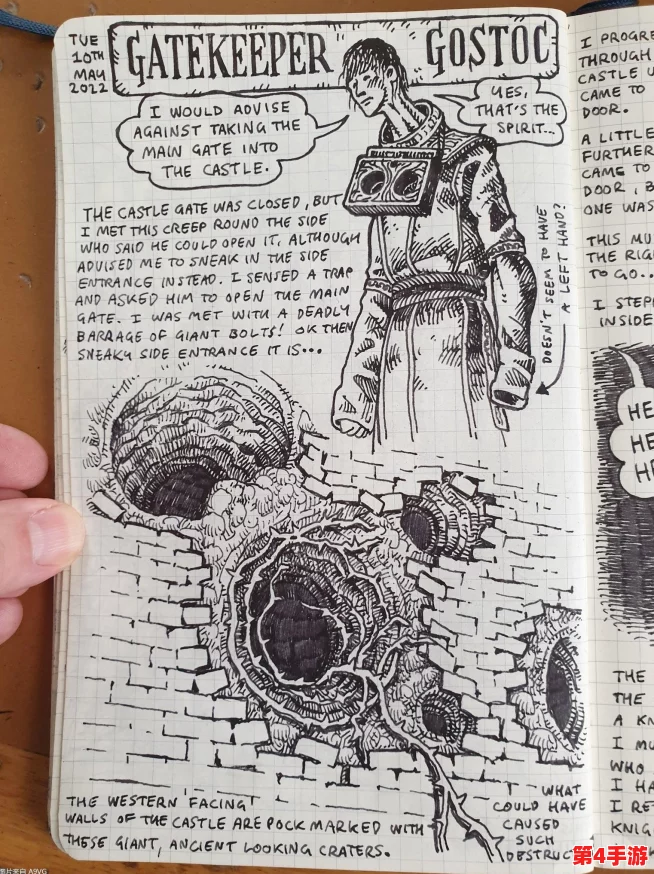 TUE
10TH
MAY
2022
GATEKEEPER GOSTOC
I WOULD ADVISE
AGAINST TAKING THE
MAIN GATE INTO
THE CASTLE.
YES,
THAT'S THE
SPIRIT...
THE CASTLE GATE WAS CLOSED, BUT
I MET THIS CREEP ROUND THE SIDE
WHO SAID HE COULD OPEN IT, ALTHOUGH
ADVISED ME TO SNEAK IN THE SIDE
ENTRANCE INSTEAD. I SENSED A TRAP
AND ASKED HIM TO OPEN THE MAIN
GATE. I WAS MET WITH A DEADLY
BARRAGE OF GIANT BOLTS! OK THEN
SNEAKY SIDE ENTRANCE IT IS...
DOESN'T SEEM TO HAVE
A LEFT HAND?
THE WESTERN FACING
WALLS OF THE CASTLE ARE POCK MARKED WITH
THESE GIANT, ANCIENT LOOKING CRATERS.
WHAT
COULD HAVE
CAUSED
SUCH
I PROGRE
THROUGH
CASTLE U
CAME TO
DOOR.
A LITTLE
FURTHER
CAME TO
DOOR, B
ONE WAS
THIS MU
THE RIG
TO GO...
I STEP
INSIDE
HE
HE
HE
THE
THE
A KN
I MU
WHO
I HA
I RE
KNIG
第4手游
图片来自 A9VG